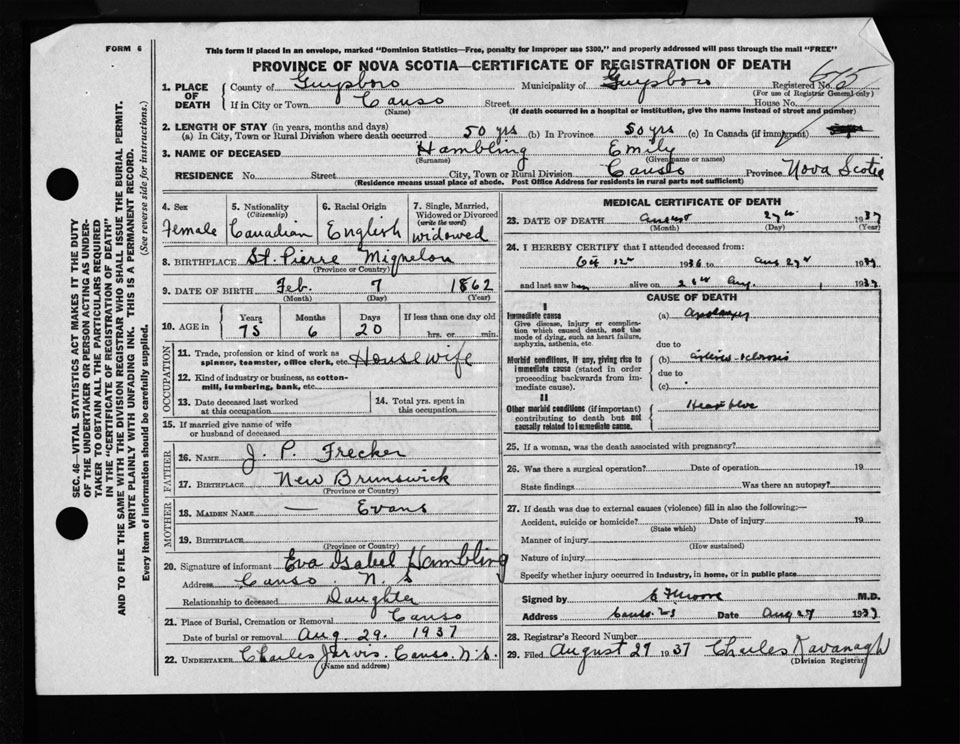 FORM 6
This form if placed in an envelope, marked "Dominion Statistics—Free, penalty for improper use $300," and properly addressed will pass through the mail "FREE"
PROVINCE OF NOVA SCOTIA—CERTIFICATE OF REGISTRATION OF DEATH
SEC. 46—VITAL STATISTICS ACT MAKES IT THE DUTY
OF THE UNDERTAKER OR PERSON ACTING AS UNDER-
TAKER TO OBTAIN ALL THE PARTICULARS REQUIRED
IN THE "CERTIFICATE OF REGISTRATION OF DEATH"
AND TO FILE THE SAME WITH THE DIVISION REGISTRAR WHO SHALL ISSUE THE BURIAL PERMIT.
WRITE PLAINLY WITH UNFADING INK. THIS IS A PERMANENT RECORD.
Every item of information should be carefully supplied. (See reverse side for instructions.)
1. PLACE OF DEATH County of Guysboro Municipality of Guysboro Registered No. 675
(For use of Registrar General only)
If in City or Town Canso Street House No.
(Name) (If death occurred in a hospital or institution, give the name instead of street and number)
2. LENGTH OF STAY (in years, months and days)
(a) In City, Town or Rural Division where death occurred 50 yrs (b) In Province 50 yrs (c) In Canada (if immigrant)
3. NAME OF DECEASED Hambling Emily
(Surname) (Given name or names)
RESIDENCE No. Street City, Town or Rural Division Canso Province Nova Scotia
(Residence means usual place of abode. Post Office Address for residents in rural parts not sufficient)
4. Sex Female
5. Nationality (Citizenship) Canadian
6. Racial Origin English
7. Single, Married, Widowed or Divorced (write the word) widowed
8. BIRTHPLACE St. Pierre Miquelon
(Province or Country)
9. DATE OF BIRTH Feb. 7 1862
(Month) (Day) (Year)
10. AGE in Years 75 Months 6 Days 20 If less than one day old hrs. or min.
OCCUPATION
11. Trade, profession or kind of work as spinner, teamster, office clerk, etc. Housewife
12. Kind of industry or business, as cotton-mill, lumbering, bank, etc.
13. Date deceased last worked at this occupation
14. Total yrs. spent in this occupation
15. If married give name of wife or husband of deceased
FATHER
16. NAME J. P. Frecker
17. BIRTHPLACE New Brunswick
(Province or Country)
MOTHER
18. MAIDEN NAME — Evans
19. BIRTHPLACE
(Province or Country)
20. Signature of informant Eva Isabel Hambling
Address Canso N.S
Relationship to deceased Daughter
21. Place of Burial, Cremation or Removal Canso
Date of burial or removal Aug. 29. 1937
22. UNDERTAKER Charles Jarvis. Canso, N.S.
(Name and address)
MEDICAL CERTIFICATE OF DEATH
23. DATE OF DEATH August 27th 1937
(Month) (Day) (Year)
24. I HEREBY CERTIFY that I attended deceased from:
Oct 12th 1936 to Aug 27th 1937
and last saw her alive on Aug. 1937
CAUSE OF DEATH
I
Immediate cause
Give disease, injury or complication which caused death, not the mode of dying, such as heart failure, asphyxia, asthenia, etc.
(a) Apoplexy
due to
Morbid conditions, if any, giving rise to immediate cause (stated in order proceeding backwards from immediate cause).
(b) arterio-sclerosis
due to
(c)
II
Other morbid conditions (if important) contributing to death but not causally related to immediate cause.
Heart
25. If a woman, was the death associated with pregnancy?
26. Was there a surgical operation? Date of operation 19
State findings Was there an autopsy?
27. If death was due to external causes (violence) fill in also the following:—
Accident, suicide or homicide? Date of injury 19
(State which)
Manner of injury
(How sustained)
Nature of injury
Specify whether injury occurred in industry, in home, or in public place
Signed by Moore M.D.
Address Canso N.S Date Aug 27 1937
28. Registrar's Record Number
29. Filed August 29 1937 Charles Kavanagh
(Division Registrar)